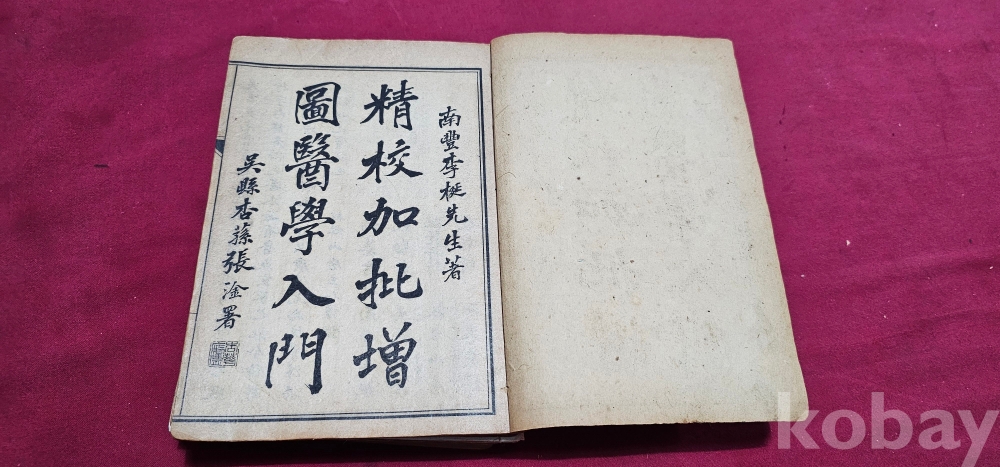 南豐李梴先生著
精校加批增
圖醫學入門
吳縣杏蓀張淦署
kobay